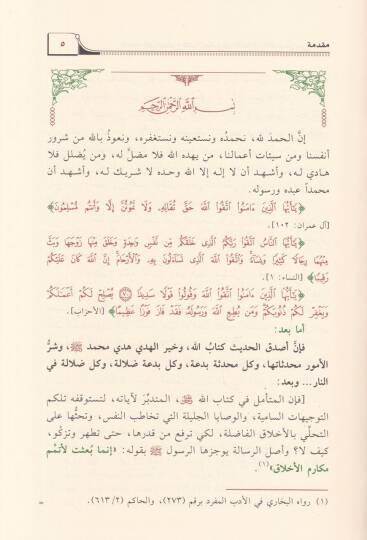 مقدمة
٥
بسم الله الرحمن الرحيم
إنَّ الحمدَ لله، نحمدُه ونستعينه ونستغفره، ونعوذُ بالله من شرور
أنفسنا ومن سيئات أعمالنا، من يهده الله فلا مضلَّ له، ومن يُضلل فلا
هادي له، وأشهد أن لا إله إلا الله وحده لا شريك له، وأشهد أن
محمداً عبده ورسوله.
﴿يَٰٓأَيُّهَا ٱلَّذِينَ ءَامَنُوا۟ ٱتَّقُوا۟ ٱللَّهَ حَقَّ تُقَاتِهِۦ وَلَا تَمُوتُنَّ إِلَّا وَأَنتُم مُّسْلِمُونَ﴾
[آل عمران: ١٠٢].
﴿يَٰٓأَيُّهَا ٱلنَّاسُ ٱتَّقُوا۟ رَبَّكُمُ ٱلَّذِى خَلَقَكُم مِّن نَّفْسٍ وَٰحِدَةٍ وَخَلَقَ مِنْهَا زَوْجَهَا وَبَثَّ
مِنْهُمَا رِجَالًا كَثِيرًا وَنِسَآءً وَٱتَّقُوا۟ ٱللَّهَ ٱلَّذِى تَسَآءَلُونَ بِهِۦ وَٱلْأَرْحَامَ إِنَّ ٱللَّهَ كَانَ عَلَيْكُمْ
رَقِيبًا﴾ [النساء: ١].
﴿يَٰٓأَيُّهَا ٱلَّذِينَ ءَامَنُوا۟ ٱتَّقُوا۟ ٱللَّهَ وَقُولُوا۟ قَوْلًا سَدِيدًا ۝٧٠ يُصْلِحْ لَكُمْ أَعْمَٰلَكُمْ
وَيَغْفِرْ لَكُمْ ذُنُوبَكُمْ وَمَن يُطِعِ ٱللَّهَ وَرَسُولَهُۥ فَقَدْ فَازَ فَوْزًا عَظِيمًا﴾ [الأحزاب].
أما بعد:
فإنَّ أصدق الحديث كتابُ الله، وخير الهدي هدي محمد ﷺ، وشرُّ
الأمور محدثاتها، وكل محدثة بدعة، وكل بدعة ضلالة، وكل ضلالة في
النار... وبعد:
[فإن المتأمل في كتاب الله ﷻ، المتدبِّرَ لآياته، لتستوقفه تلكم
التوجيهات السامية، والوصايا الجليلة التي تخاطب النفس، وتحثُّها على
التحلِّي بالأخلاق الفاضلة، لكي ترفع من قدرها، حتى تطهر وتزكُو،
كيف لا؟ وأصل الرسالة يوجزها الرسول ﷺ بقوله: «إنما بُعثت لأتمِّم
مكارم الأخلاق»(١).
(١) رواه البخاري في الأدب المفرد برقم (٢٧٣)، والحاكم (٦١٣/٢).